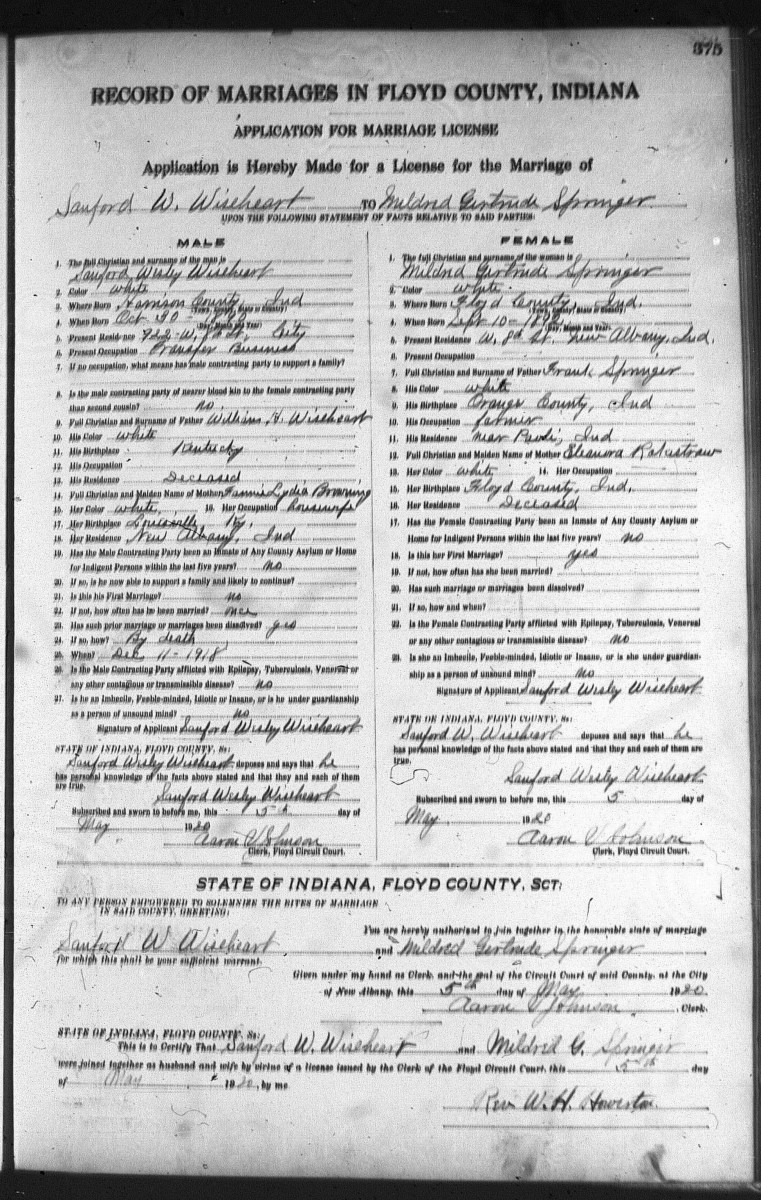 375
RECORD OF MARRIAGES IN FLOYD COUNTY, INDIANA
APPLICATION FOR MARRIAGE LICENSE
Application is Hereby Made for a License for the Marriage of
Sanford W. Wiseheart TO Mildred Gertrude Springer
UPON THE FOLLOWING STATEMENT OF FACTS RELATIVE TO SAID PARTIES:
MALE
1. The full Christian and surname of the man is
Sanford Wesley Wiseheart
2. Color white
3. Where Born Harrison County, Ind
(Town, County, State or Country)
4. When Born Oct
(Day, Month and Year)
5. Present Residence 922 W. St. City
6. Present Occupation Transfer Business
7. If no occupation, what means has male contracting party to support a family?
8. Is the male contracting party of nearer blood kin to the female contracting party
than second cousin? no
9. Full Christian and Surname of Father William H. Wiseheart
10. His Color white
11. His Birthplace Kentucky
12. His Occupation
13. His Residence Deceased
14. Full Christian and Maiden Name of Mother Fannie Lydia Browning
15. Her Color white, 16. Her Occupation housewife
17. Her Birthplace Louisville Ky.
18. Her Residence New Albany, Ind
19. Has the Male Contracting Party been an Inmate of Any County Asylum or Home
for Indigent Persons within the last five years? no
20. If so, is he now able to support a family and likely to continue?
21. Is this his First Marriage? no
22. If not, how often has he been married? once
23. Has such prior marriage or marriages been dissolved? yes
24. If so, how? By death
25. When? Dec 11-1918
26. Is the Male Contracting Party afflicted with Epilepsy, Tuberculosis, Venereal or
any other contagious or transmissible disease? no
27. Is he an Imbecile, Feeble-minded, Idiotic or Insane, or is he under guardianship
as a person of unsound mind? no
Signature of Applicant Sanford Wesley Wiseheart
STATE OF INDIANA, FLOYD COUNTY, Ss:
Sanford Wesley Wiseheart deposes and says that he
has personal knowledge of the facts above stated and that they and each of them
are true.
Sanford Wesley Wiseheart
Subscribed and sworn to before me, this 5th day of
May 1920
Aaron Johnson
Clerk, Floyd Circuit Court.
FEMALE
1. The full Christian and surname of the woman is
Mildred Gertrude Springer
2. Color white
3. Where Born Floyd County, Ind.
(Town, County, State or Country)
4. When Born Sept 10-
(Day, Month and Year)
5. Present Residence W. 8d St. New Albany, Ind.
6. Present Occupation
7. Full Christian and Surname of Father Frank Springer
8. His Color white
9. His Birthplace Orange County, Ind
10. His Occupation farmer
11. His Residence near Paoli, Ind
12. Full Christian and Maiden Name of Mother Eleanora
13. Her Color white 14. Her Occupation
15. Her Birthplace Floyd County, Ind.
16. Her Residence Deceased
17. Has the Female Contracting Party been an Inmate of Any County Asylum or
Home for Indigent Persons within the last five years? no
18. Is this her First Marriage? yes
19. If not, how often has she been married?
20. Has such marriage or marriages been dissolved?
21. If so, how and when?
22. Is the Female Contracting Party afflicted with Epilepsy, Tuberculosis, Venereal
or any other contagious or transmissible disease? no
23. Is she an Imbecile, Feeble-minded, Idiotic or Insane, or is she under guardian-
ship as a person of unsound mind? no
Signature of Applicant Sanford Wesley Wiseheart
STATE OF INDIANA, FLOYD COUNTY, Ss:
Sanford W. Wiseheart deposes and says that he
has personal knowledge of the facts above stated and that they and each of them are
true.
Sanford Wesley Wiseheart
Subscribed and sworn to before me, this 5 day of
May 1920
Aaron Johnson
Clerk, Floyd Circuit Court.
STATE OF INDIANA, FLOYD COUNTY, SCT:
TO ANY PERSON EMPOWERED TO SOLEMNIZE THE RITES OF MARRIAGE
IN SAID COUNTY, GREETING:
You are hereby authorized to join together in the honorable state of marriage
Sanford W Wiseheart and Mildred Gertrude Springer
for which this shall be your sufficient warrant.
Given under my hand as Clerk and the seal of the Circuit Court of said County, at the City
of New Albany, this 5th day of May 1920
Aaron Johnson, Clerk.
STATE OF INDIANA, FLOYD COUNTY, Ss:
This is to Certify That Sanford W. Wiseheart and Mildred G. Springer
were joined together as husband and wife by virtue of a license issued by the Clerk of the Floyd Circuit Court, this 5th day
of May 1920, by me
Rev. W. H.